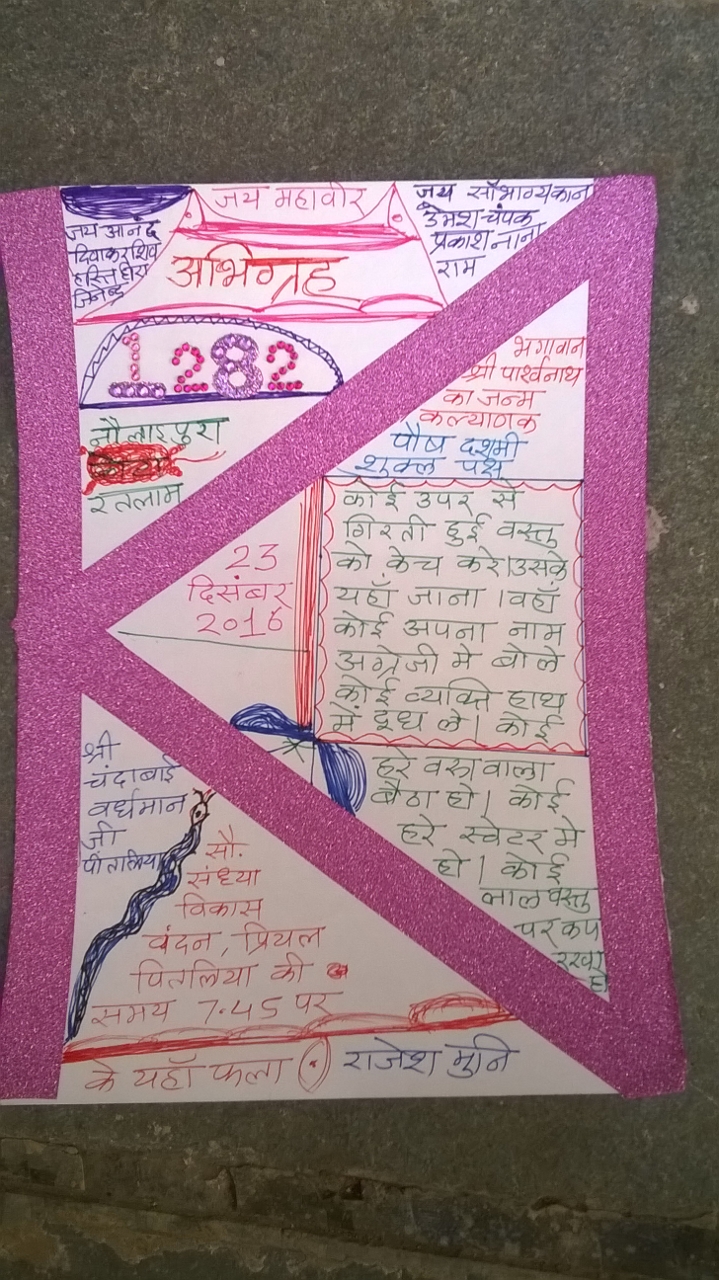 जय महावीर
जय आनंद
दिवाकर शिव
हस्ति हीरा
जिनेन्द्र
जय सौभाग्य कान
उमेश चंपक
प्रकाश नाना
राम
अभिग्रह
1282
नौलाइपुरा
रतलाम
भगवान
श्री पार्श्वनाथ
का जन्म
कल्याणक
पौष दशमी
शुक्ल पक्ष
23
दिसंबर
2016
कोई उपर से
गिरती हुई वस्तु
को केच करे।उसके
यहाँ जाना ।वहाँ
कोई अपना नाम
अंग्रेजी मे बोले
कोई व्यक्ति हाथ
में दूध ले। कोई
हरे वस्त्र वाला
बैठा हो। कोई
हरे स्वेटर मे
हो। कोई
लाल वस्तु
पर कप
रखा
हो
श्री
चंदाबाई
वर्धमान
जी
पीतलिया
सौ.
संध्या
विकास
वंदन, प्रियल
पितलिया की
समय 7.45 पर
के यहाँ फला
राजेश मुनि